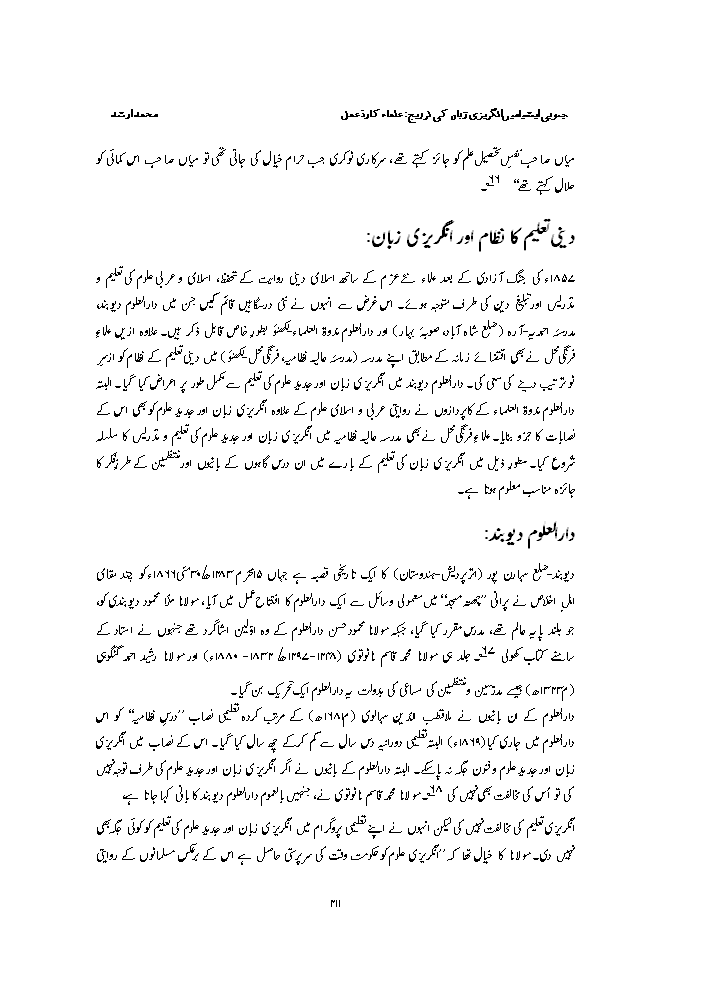 جنوبی ایشیا میں انگریزی زبان کی ترویج: علماء کا ردّعمل محمد ارشد
میاں صاحب نفسِ تحصیلِ علم کو جائز کہتے تھے، سرکاری نوکری جب حرام خیال کی جاتی تھی تو میاں صاحب اس کمائی کو
حلال کہتے تھے“ ۶۶؎۔
دینی تعلیم کا نظام اور انگریزی زبان:
۱۸۵۷ء کی جنگ آزادی کے بعد علماء نئے عزم کے ساتھ اسلامی دینی روایت کے تحفظ، اسلامی و عربی علوم کی تعلیم و
تدریس اور تبلیغ دین کی طرف متوجہ ہوئے۔ اس غرض سے انہوں نے نئی درسگاہیں قائم کیں جن میں دارالعلوم دیوبند،
مدرسہ احمدیہ-آرہ (ضلع شاہ آباد، صوبۂ بہار) اور دارالعلوم ندوۃ العلماء لکھنؤ بطورِ خاص قابل ذکر ہیں۔ علاوہ ازیں علماءِ
فرنگی محل نے بھی اقتضائے زمانہ کے مطابق اپنے مدرسہ (مدرسہ عالیہ نظامیہ، فرنگی محل لکھنؤ) میں دینی تعلیم کے نظام کو ازسرِ
نو ترتیب دینے کی سعی کی۔ دارالعلوم دیوبند میں انگریزی زبان اور جدید علوم کی تعلیم سے مکمل طور پر اعراض کیا گیا۔ البتہ
دارالعلوم ندوۃ العلماء کے کارپردازوں نے روایتی عربی و اسلامی علوم کے علاوہ انگریزی زبان اور جدید علوم کو بھی اس کے
نصابات کا جزو بنایا۔ علماءِ فرنگی محل نے بھی مدرسہ عالیہ نظامیہ میں انگریزی زبان اور جدید علوم کی تعلیم و تدریس کا سلسلہ
شروع کیا۔ سطورِ ذیل میں انگریزی زبان کی تعلیم کے بارے میں ان درس گاہوں کے بانیوں اور منتظمین کے طرزِ فکر کا
جائزہ مناسب معلوم ہوتا ہے۔
دارالعلوم دیوبند:
دیوبند-ضلع سہارن پور (اترپردیش-ہندوستان) کا ایک تاریخی قصبہ ہے جہاں ۱۵محرم ۱۲۸۳ھ/۳۰مئی ۱۸۶۶ء کو چند مقامی
اہلِ اخلاص نے پرانی ”چھتہ مسجد“ میں معمولی وسائل سے ایک دارالعلوم کا افتتاح عمل میں آیا، مولانا ملّا محمود دیوبندی کو،
جو بلند پایہ عالم تھے، مدرس مقرر کیا گیا، جبکہ مولانا محمود حسن دارالعلوم کے وہ اوّلین شاگرد تھے جنہوں نے استاد کے
سامنے کتاب کھولی ۶۷؎۔ جلد ہی مولانا محمد قاسم نانوتوی (۱۲۴۸-۱۲۹۷ھ/ ۱۸۳۲-۱۸۸۰ء) اور مولانا رشید احمد گنگوہی
(م۱۳۲۳ھ) جیسے مدرّسین و منتظمین کی مساعی کی بدولت یہ دارالعلوم ایک تحریک بن گیا۔
دارالعلوم کے ان بانیوں نے ملاقطب الدّین سہالوی (م۱۱۶۸ھ) کے مرتب کردہ تعلیمی نصاب ”درسِ نظامیہ“ کو اس
دارالعلوم میں جاری کیا (۱۸۶۹ء) البتہ تعلیمی دورانیہ دس سال سے کم کرکے چھ سال کیا گیا۔ اس کے نصاب میں انگریزی
زبان اور جدید علوم و فنون جگہ نہ پاسکے۔ البتہ دارالعلوم کے بانیوں نے اگر انگریزی زبان اور جدید علوم کی طرف توجہ نہیں
کی تو اُس کی مخالفت بھی نہیں کی ۶۸؎۔ مولانا محمد قاسم نانوتوی نے، جنہیں بالعموم دارالعلوم دیوبند کا بانی کہا جاتا ہے
انگریزی تعلیم کی مخالفت نہیں کی لیکن انہوں نے اپنے تعلیمی پروگرام میں انگریزی زبان اور جدید علوم کی تعلیم کو کوئی جگہ بھی
نہیں دی۔ مولانا کا خیال تھا کہ ”انگریزی علوم کو حکومت وقت کی سرپرستی حاصل ہے اس کے برعکس مسلمانوں کے روایتی
۳۱۱